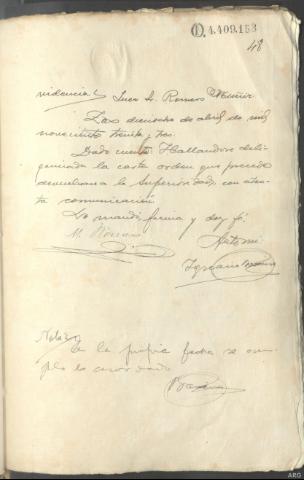 D.4.409.153
48
videncia Juez Sr. Romero Muñiz
Las dieciocho de abril de mil
novecientos treinta y tres.
Dado cuenta Hallandose dili-
genciada la carta orden que precede
devuelvase a la Superioridad, con aten-
ta comunicación.
Lo mandó, firma y doy fé
M. Romero
Antemi
Ignacio
Nota
En la propia fecha se cum-
ple lo acordado
ARG